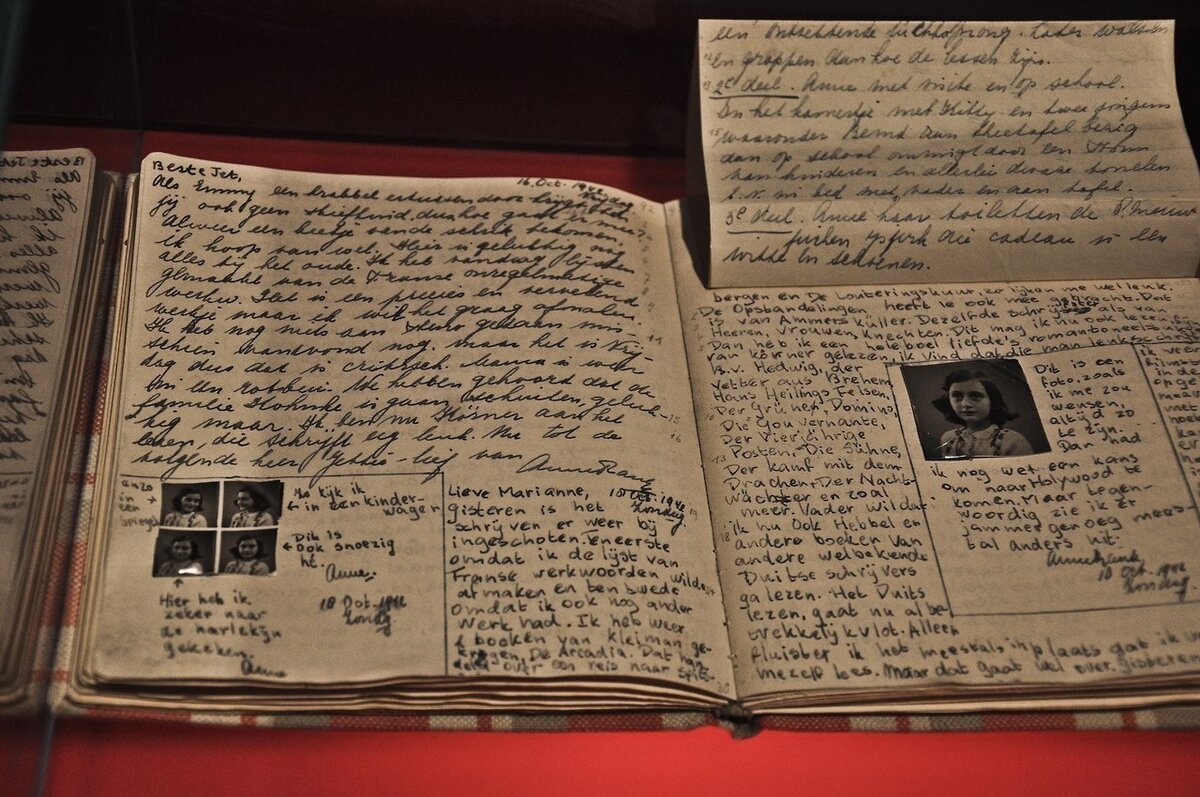 Beste Jet,
16. Oct. 1942
Als Emmy een krabbel ertussen door
jij ook geen stiefkind, dus hoe gaat 't met je?
Alweer een beetje van de schrik bekomen,
ik hoop van wel. Hier is gelukkig nog
alles bij het oude. Ik heb vandaag lijsten
gemaakt van de Franse onregelmatige
werkw. Het is een precies en vervelend
werkje maar ik wil het graag afmaken.
Ik heb nog niets aan Steno gedaan mis-
schien vanavond nog, maar het is Vrij-
dag dus dat is critisch. Mama is weer
in een We hebben gehoord dat de
familie is gaan schuilen, geluk-
kig maar. Ik ben nu Körner aan het
lezen, die schrijft erg leuk. Nu tot de
volgende keer Jettie-lief van
Anne Frank
enzo
in
een
spiegel
Zo kijk ik
in een kinder-
wagen
Dit is
Ook snoezig
hè.
Anne.
Hier heb ik
zeker naar
de harlekijn
gekeken.
Anne
18 Oct. 1942
Zondag
Lieve Marianne,
18 Oct. 1942
Zondag
gisteren is het
schrijven er weer bij
ingeschoten. eneerste
omdat ik de lijst van
Franse werkwoorden wilde
afmaken en ten twede
omdat ik ook nog ander
werk had. Ik heb weer
2 boeken van kleiman ge-
kregen, De Arcadia. Dat han-
delt over een reis naar Spits-
een ontzettende luchtsprong. Later walsen
en grappen dan hoe de lessen zijn.
2e deel. Anne met visite en op school.
In het kamertje met Kitty en twee jongens
waaronder Bernd aan theetafel bezig
dan op school omringd door een
van kinderen en allerlei dwaze
b.v. in bed met vader en aan tafel.
3e deel. Anne haar toiletten de 8 nieuwe
jurken die cadeau is een
witte en schoenen.
bergen en De Louteringskuur, zo lijken me wel leuk.
De Opstandelingen, heeft ie ook mee gebracht. Dat
is van Ammers Küller. Dezelfde schrijfster als van
Heeren, Vrouwen, Knechten. Dit mag ik nu ook lezen fijn
Dan heb ik een heleboel liefde's romantoneelstukjes
van körner gelezen, ik vind dat die man leuk schrijft
B.v. Hedwig, der
Vetter aus Brehem,
Hans Heilings Felsen,
Der Grüner, Domino,
Die Gouvernante,
Der Vier Jährige
Posten, Die Sühne,
Der Kampf mit dem
Drachen, Der Nacht-
wächter en zoal
meer. Vader wil dat
ik nu Ook Hebbel en
andere boeken van
andere welbekende
Duitse schrijvers
ga lezen. Het Duits
lezen, gaat nu al be-
trekkelijk vlot. Alleen
fluister ik het meestal, in plaats dat ik
mezelf lees. Maar dat gaat wel over. gisteren
Dit is een
foto, zoals
ik me zou
wensen,
altijd zo
te zijn.
Dan had
ik nog wel een kans
om naar Holywood te
komen. Maar tegen-
woordig zie ik er
jammer genoeg mees-
tal anders uit.
Annefrank
18 Oct. 1942
Zondag